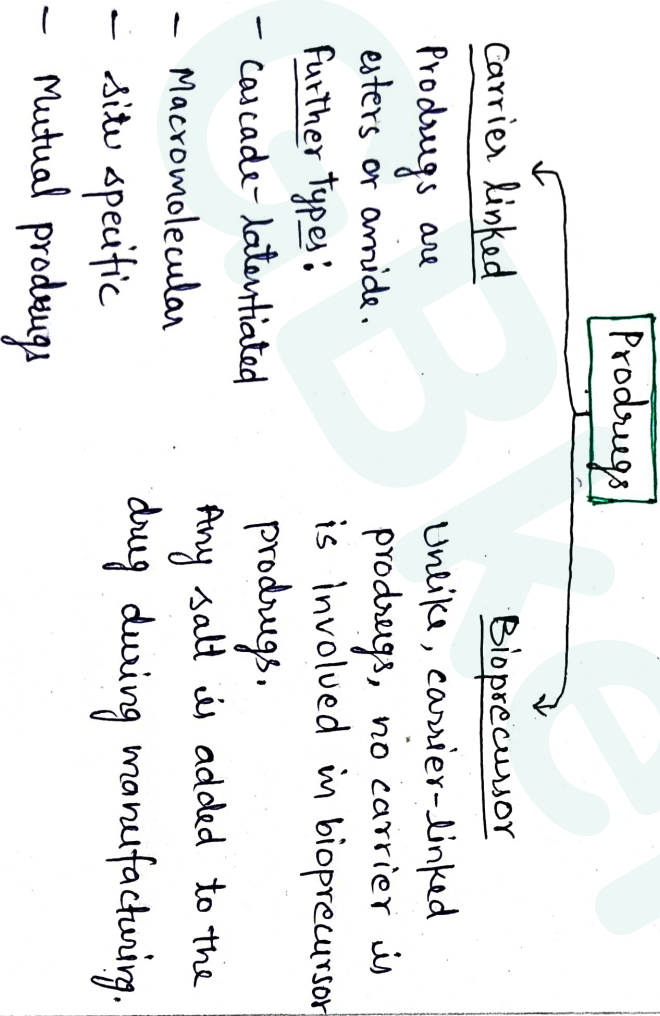 Prodrugs
Carrier linked
Prodrugs are
esters or amide.
Further types:
- Cascade-latentiated
- Macromolecular
- site specific
- Mutual prodrugs
Bioprecursor
Unlike, carrier-linked
prodrugs, no carrier is
is involved in bioprecursor
prodrugs.
Any salt is added to the
drug during manufacturing.